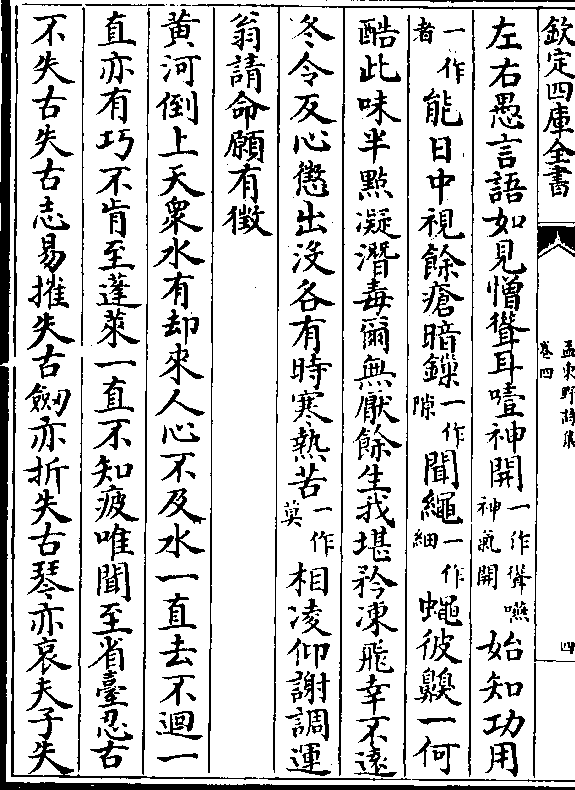 欽定四庫全書
孟東野詩集
卷四
四
左右愚言語如見憎聳耳噎神開一作聳嚥神氣開始知功用
一作者能日中視餘瘡暗鏁一作隙聞繩一作細蠅彼齅一何
酷此味半點凝潛毒爾無厭餘生我堪矜凍飛幸不遠
冬令反心懲出没各有時寒熱苦一作莫相凌仰謝調運
翁請命願有徵
黄河倒上天衆水有却來人心不及水一直去不迴一
直亦有巧不肯至蓬萊一直不知疲唯聞至省臺忍古
不失古失古志易摧失古劒亦折失古琴亦哀夫子失